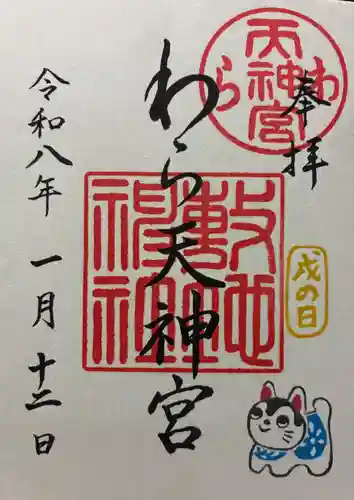 奉拝
わら天神宮
天神宮
わら
敷地神社
戌の日
わら天神宮
令和八年 一月 十二日